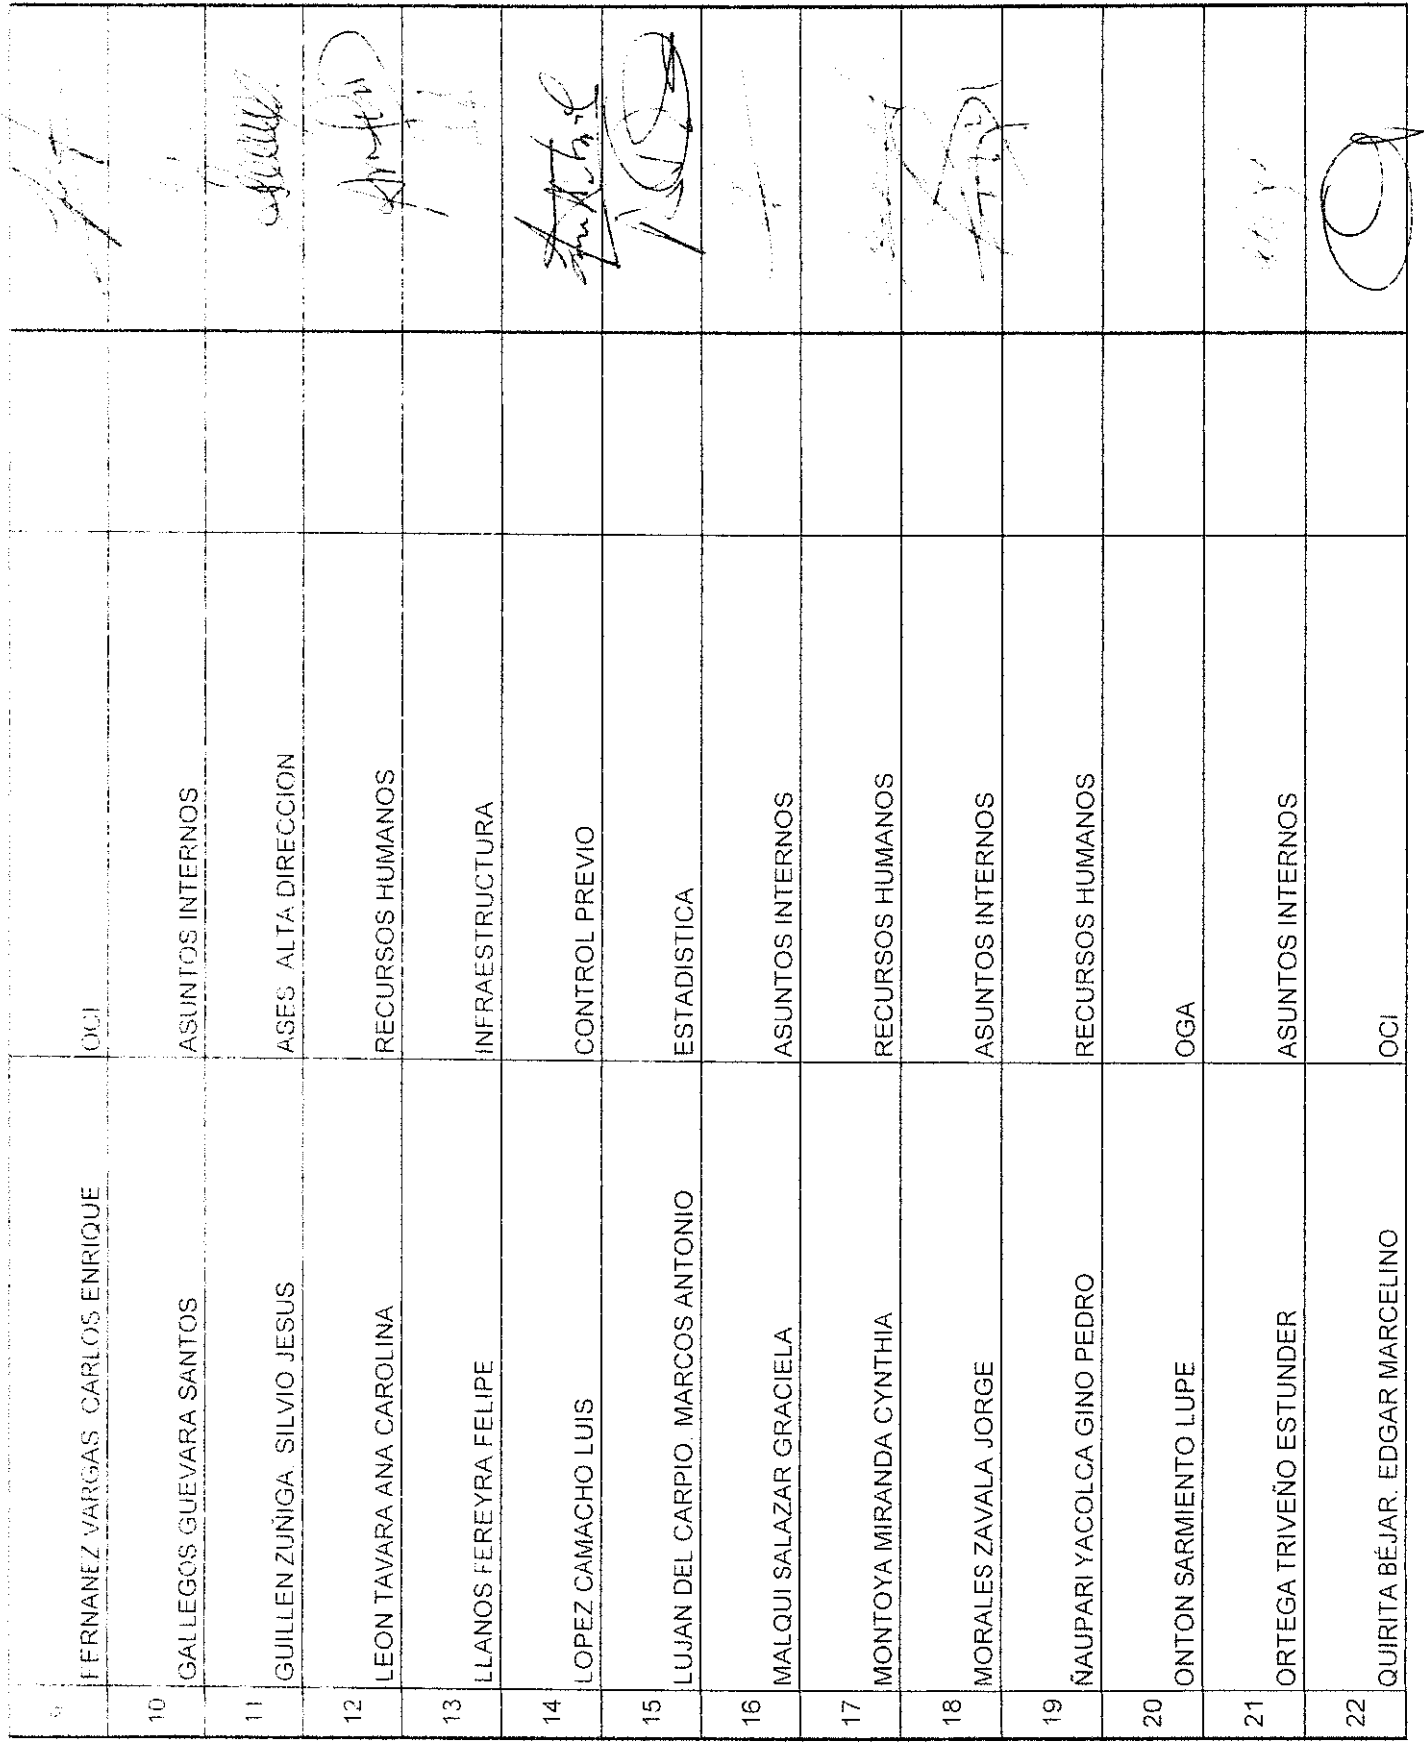 9 FERNANEZ VARGAS CARLOS ENRIQUE OCI
10 GALLEGOS GUEVARA SANTOS ASUNTOS INTERNOS
11 GUILLEN ZUÑIGA. SILVIO JESUS ASES. ALTA DIRECCION
12 LEON TAVARA ANA CAROLINA RECURSOS HUMANOS
13 LLANOS FEREYRA FELIPE INFRAESTRUCTURA
14 LOPEZ CAMACHO LUIS CONTROL PREVIO
15 LUJAN DEL CARPIO. MARCOS ANTONIO ESTADISTICA
16 MALQUI SALAZAR GRACIELA ASUNTOS INTERNOS
17 MONTOYA MIRANDA CYNTHIA RECURSOS HUMANOS
18 MORALES ZAVALA JORGE ASUNTOS INTERNOS
19 ÑAUPARI YACOLCA GINO PEDRO RECURSOS HUMANOS
20 ONTON SARMIENTO LUPE OGA
21 ORTEGA TRIVEÑO ESTUNDER ASUNTOS INTERNOS
22 QUIRITA BÉJAR. EDGAR MARCELINO OCI